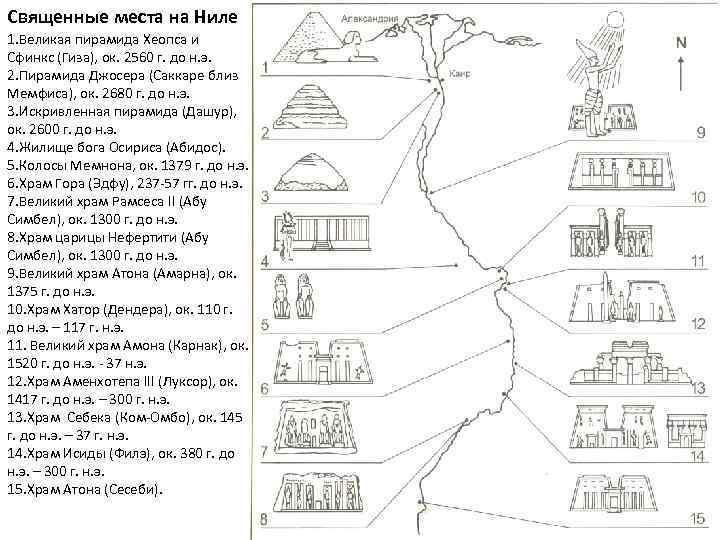 Священные места на Ниле
1. Великая пирамида Хеопса и
Сфинкс (Гиза), ок. 2560 г. до н.э.
2. Пирамида Джосера (Саккаре близ
Мемфиса), ок. 2680 г. до н.э.
3. Искривленная пирамида (Дашур),
ок. 2600 г. до н.э.
4. Жилище бога Осириса (Абидос).
5. Колосы Мемнона, ок. 1379 г. до н.э.
6. Храм Гора (Эдфу), 237-57 гг. до н.э.
7. Великий храм Рамсеса II (Абу
Симбел), ок. 1300 г. до н.э.
8. Храм царицы Нефертити (Абу
Симбел), ок. 1300 г. до н.э.
9. Великий храм Атона (Амарна), ок.
1375 г. до н.э.
10. Храм Хатор (Дендера), ок. 110 г.
до н.э. – 117 г. н.э.
11. Великий храм Амона (Карнак), ок.
1520 г. до н.э. - 37 н.э.
12. Храм Аменхотепа III (Луксор), ок.
1417 г. до н.э. – 300 г. н.э.
13. Храм Себека (Ком-Омбо), ок. 145
г. до н.э. – 37 г. н.э.
14. Храм Исиды (Филэ), ок. 380 г. до
н.э. – 300 г. н.э.
15. Храм Атона (Сесеби).
Александрия
Каир
N
1
2
3
4
5
6
7
8
9
10
11
12
13
14
15